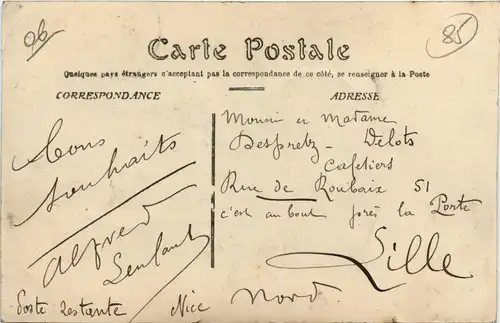 96
85
Carte Postale
Quelques pays étrangers n'acceptant pas la correspondance de ce côté, se renseigner à la Poste
CORRESPONDANCE
Bons
souhaits
Alfred
Poste restante Nice
ADRESSE
Monsieur et Madame
Despretz - Delots
Cafetiers
Rue de Roubaix 51
c'est au bout près la Porte
Lille
Nord.